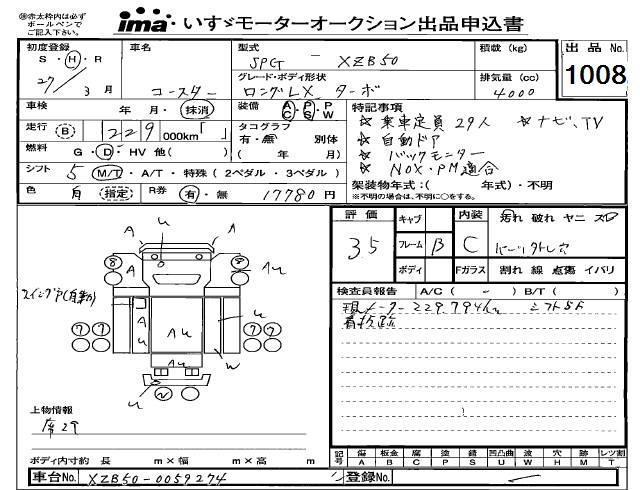 ㊟赤太枠内は必ず
ボールペンで
ご記入下さい。
ima いすゞモーターオークション出品申込書
初度登録 車名 型式 積載(kg) 出品No.
S・H・R SPG - XZB50
27/3月 コースター グレード・ボディ形状 排気量(cc) 1008
ロングLX ターボ 4000
車検 年 月・抹消 装備 A・P・P 特記事項
C・S・W
☆乗車定員29人 ☆ナビ、TV
走行(B) 1229000km「 」 タコグラフ ☆自動ドア
有・無 別体
燃料 G・D・HV 他( ) ( 年 月) ☆バックモニター
☆NOX・PM適合
シフト 5 M/T・A/T・特殊(2ペダル・3ペダル)
架装物年式:( 年式)・不明
色 白 (指定) R券 有・無 17780円 ※不明の場合は、不明に○をする。
評価 キャブ 内装 汚れ 破れ ヤニ スレ
35 フレーム B C
ボディ Fガラス 割れ 線 点傷 イバリ
検査員報告 A/C( - ) B/T( )
現メーター229,794km シフト5F
A A
8 Au
スイングドア(自動)
A u
A Au
7 7 7 7
u w
Au
u
上物情報
ボディ内寸約 長 m×幅 m×高 m
記号 傷 板金 腐 塗 錆 凹凸曲 波 穴 跡 レツ割
A B C P S U W H M T
車台No. XZB50-0059274 登録No.